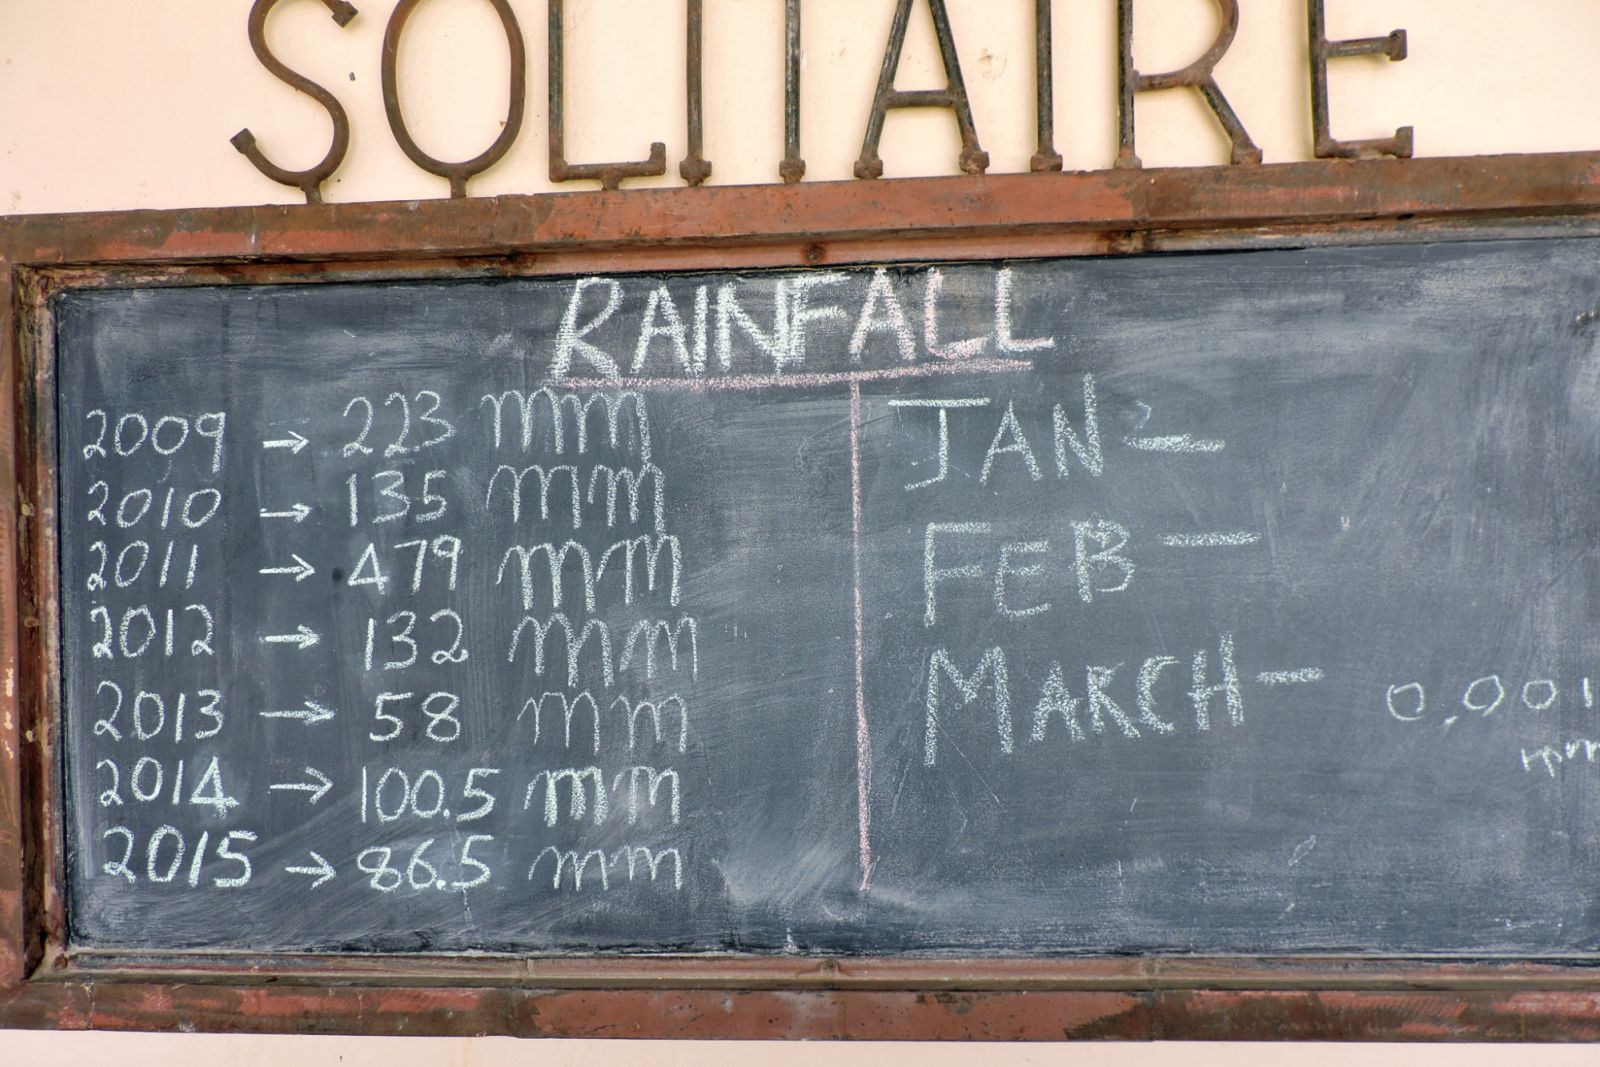 SOLITAIRE
RAINFALL
2009 → 223 mm
2010 → 135 mm
2011 → 479 mm
2012 → 132 mm
2013 → 58 mm
2014 → 100.5 mm
2015 → 86.5 mm
JAN -
FEB -
MARCH - 0,001